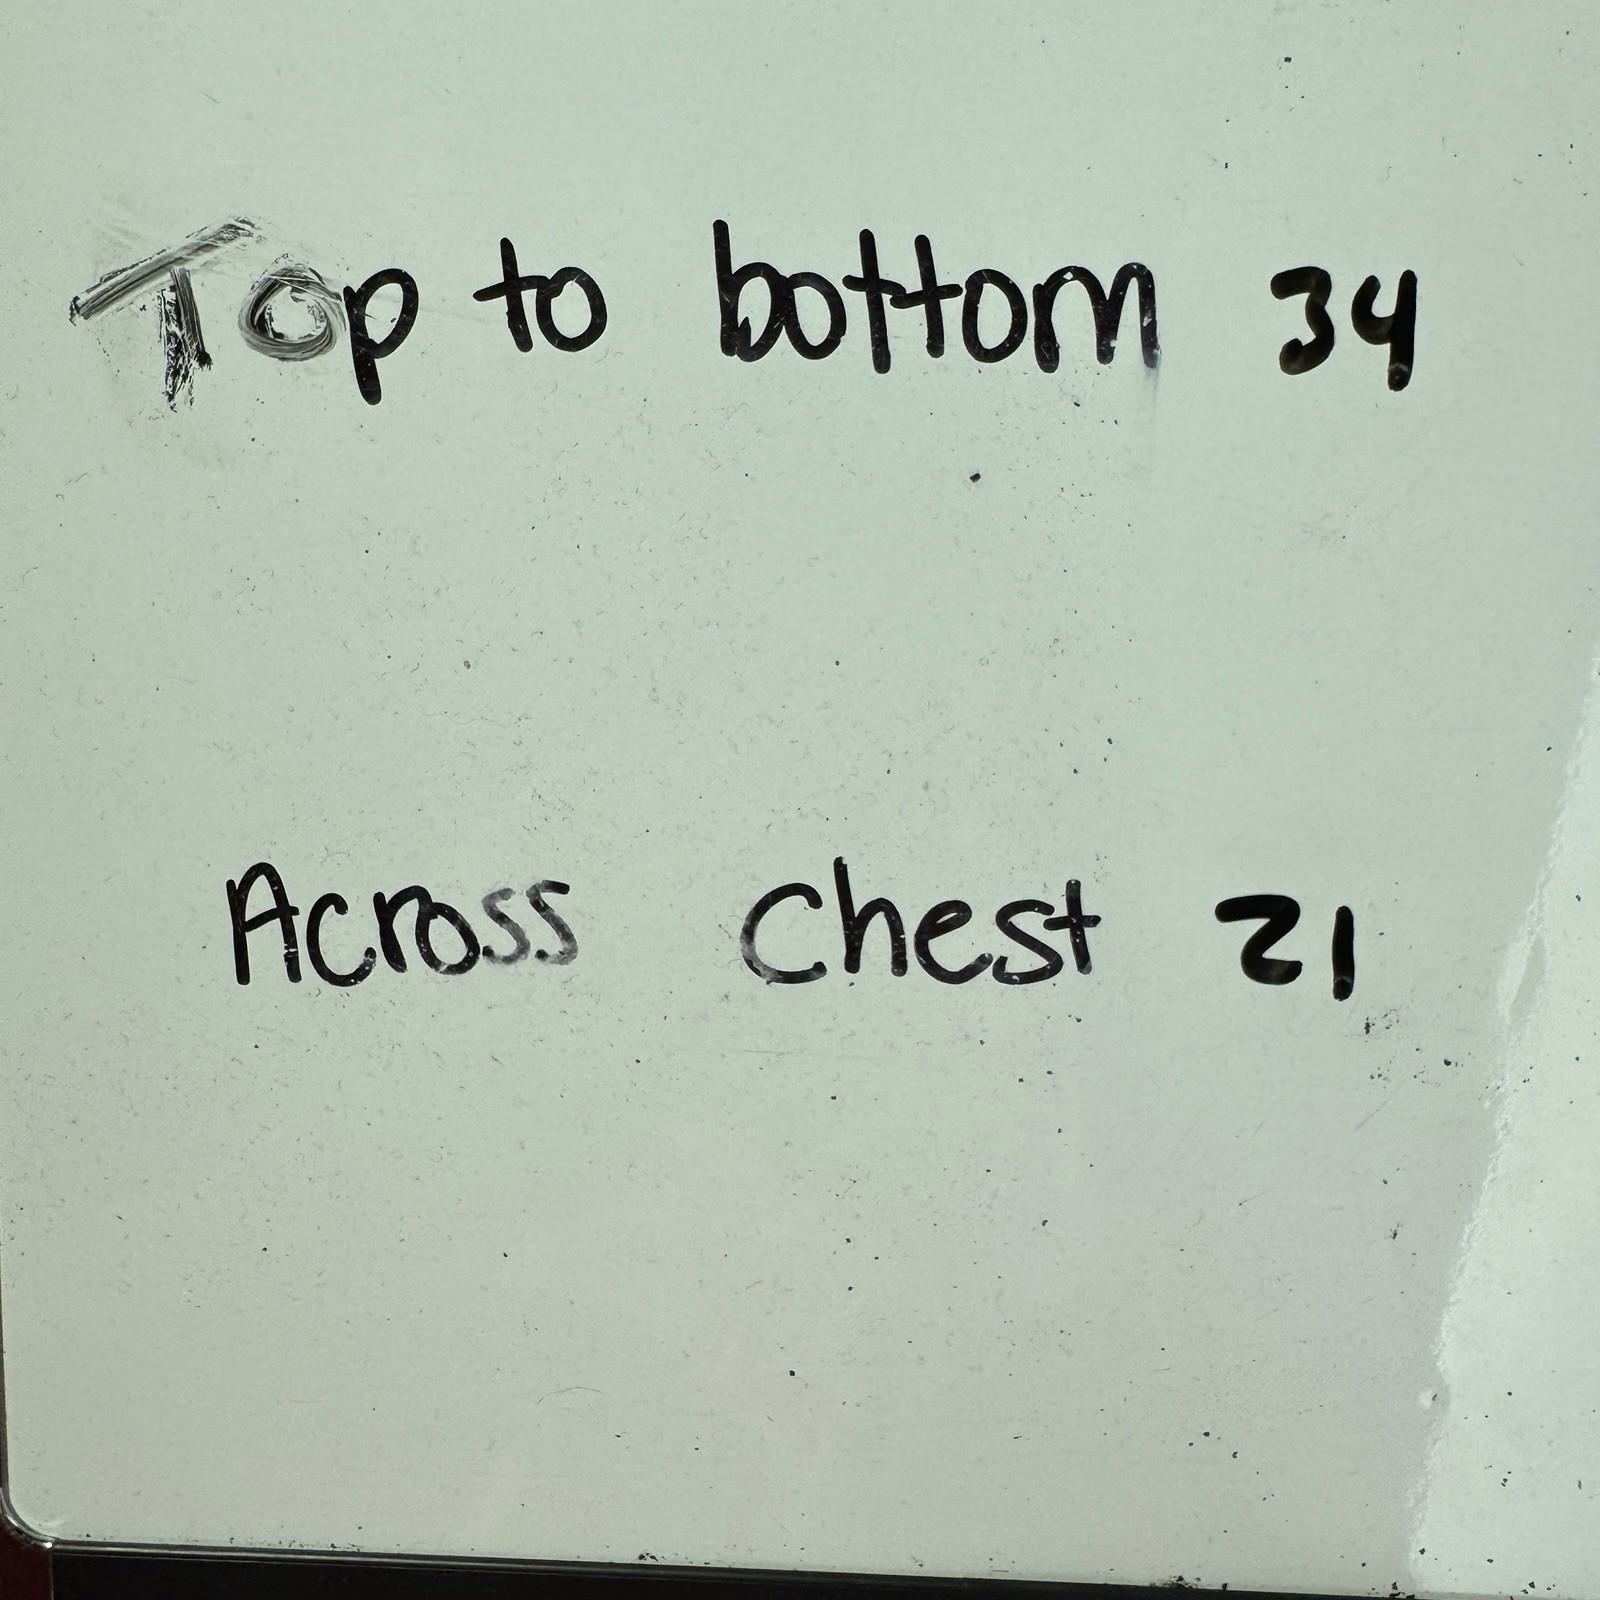 Top to bottom 34
Across chest 21